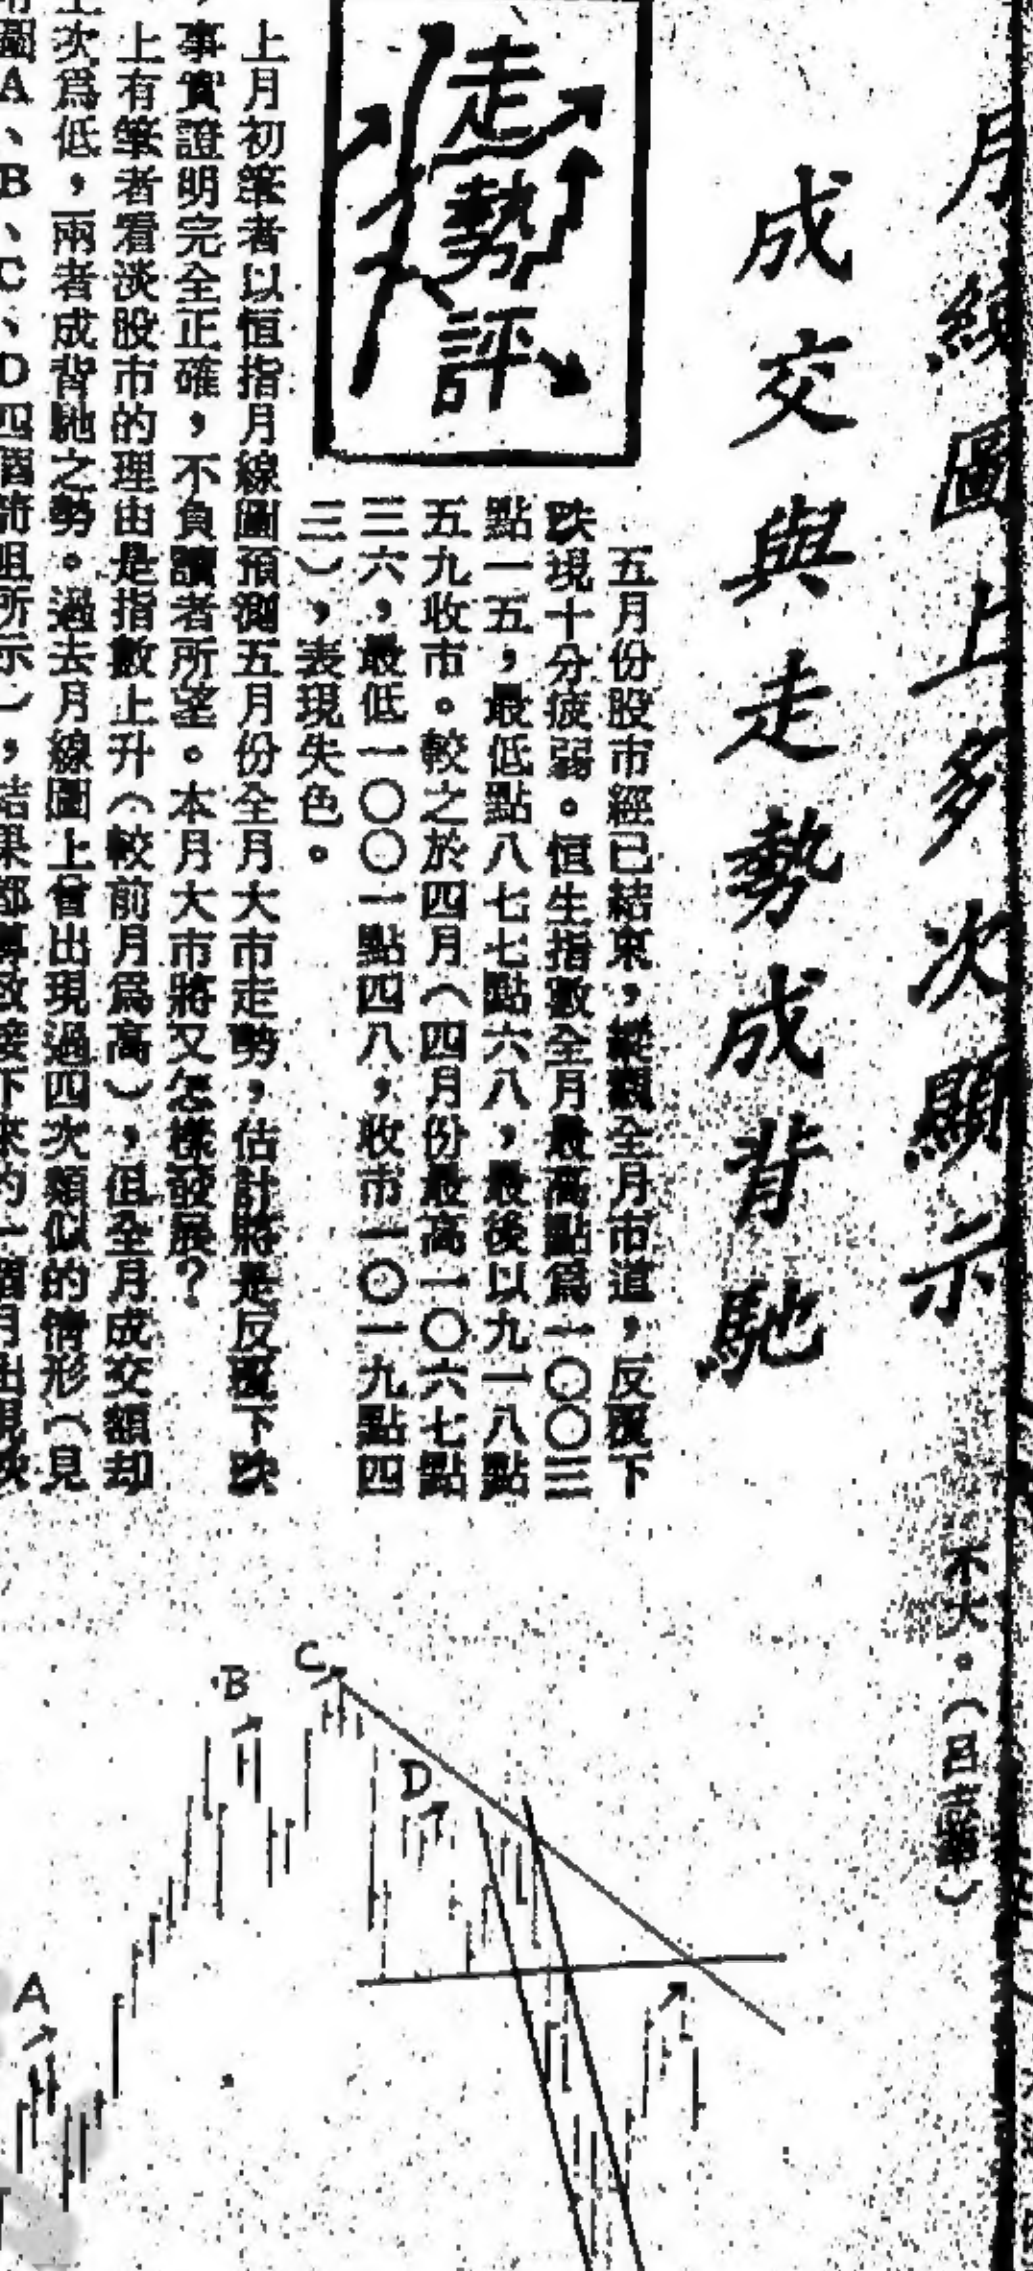 月線圖上多次顯示
成交與走勢成背馳
走勢評
五月份股市經已結束，縱觀全月市道，反覆下
跌現十分疲弱。恒生指數全月最高點爲一〇〇三
點一五，最低點八七七點六八，最後以九一八點
五九收市。較之於四月（四月份最高一〇六七點
三六，最低一〇〇一點四八，收市一〇一九點四
三），表現失色。
上月初筆者以恒指月線圖預測五月份全月大市走勢，估計將是反覆下跌
，事實證明完全正確，不負讀者所望。本月大市將又怎樣發展？
上有筆者看淡股市的理由是指數上升（較前月爲高），但全月成交額却
上次爲低，兩者成背馳之勢。過去月線圖上曾出現過四次類似的情形（見
附圖A、B、C、D四個箭咀所示），結果都導致接下來的一個月出現跌
不大。（呂志華）
A
B
C
D